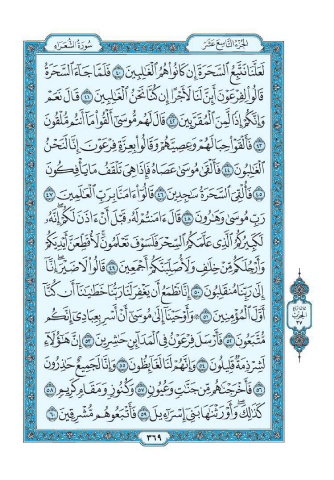 الجزء التاسع عشر
سورة الشعراء
لَعَلَّنَا نَتَّبِعُ السَّحَرَةَ إِن كَانُوا هُمُ الْغَالِبِينَ ٤٠ فَلَمَّا جَاءَ السَّحَرَةُ
قَالُوا لِفِرْعَوْنَ أَئِنَّ لَنَا لَأَجْرًا إِن كُنَّا نَحْنُ الْغَالِبِينَ ٤١ قَالَ نَعَمْ
وَإِنَّكُمْ إِذًا لَّمِنَ الْمُقَرَّبِينَ ٤٢ قَالَ لَهُم مُّوسَى أَلْقُوا مَا أَنتُم مُّلْقُونَ
٤٣ فَأَلْقَوْا حِبَالَهُمْ وَعِصِيَّهُمْ وَقَالُوا بِعِزَّةِ فِرْعَوْنَ إِنَّا لَنَحْنُ
الْغَالِبُونَ ٤٤ فَأَلْقَى مُوسَى عَصَاهُ فَإِذَا هِيَ تَلْقَفُ مَا يَأْفِكُونَ
٤٥ فَأُلْقِيَ السَّحَرَةُ سَاجِدِينَ ٤٦ قَالُوا آمَنَّا بِرَبِّ الْعَالَمِينَ ٤٧
رَبِّ مُوسَى وَهَارُونَ ٤٨ قَالَ آمَنتُمْ لَهُ قَبْلَ أَنْ آذَنَ لَكُمْ إِنَّهُ
لَكَبِيرُكُمُ الَّذِي عَلَّمَكُمُ السِّحْرَ فَلَسَوْفَ تَعْلَمُونَ لَأُقَطِّعَنَّ أَيْدِيَكُمْ
وَأَرْجُلَكُم مِّنْ خِلَافٍ وَلَأُصَلِّبَنَّكُمْ أَجْمَعِينَ ٤٩ قَالُوا لَا ضَيْرَ إِنَّا
إِلَى رَبِّنَا مُنقَلِبُونَ ٥٠ إِنَّا نَطْمَعُ أَن يَغْفِرَ لَنَا رَبُّنَا خَطَايَانَا أَن كُنَّا
أَوَّلَ الْمُؤْمِنِينَ ٥١ وَأَوْحَيْنَا إِلَى مُوسَى أَنْ أَسْرِ بِعِبَادِي إِنَّكُم
مُّتَّبَعُونَ ٥٢ فَأَرْسَلَ فِرْعَوْنُ فِي الْمَدَائِنِ حَاشِرِينَ ٥٣ إِنَّ هَؤُلَاءِ
لَشِرْذِمَةٌ قَلِيلُونَ ٥٤ وَإِنَّهُمْ لَنَا لَغَائِظُونَ ٥٥ وَإِنَّا لَجَمِيعٌ حَاذِرُونَ
٥٦ فَأَخْرَجْنَاهُم مِّن جَنَّاتٍ وَعُيُونٍ ٥٧ وَكُنُوزٍ وَمَقَامٍ كَرِيمٍ ٥٨
كَذَلِكَ وَأَوْرَثْنَاهَا بَنِي إِسْرَائِيلَ ٥٩ فَأَتْبَعُوهُم مُّشْرِقِينَ ٦٠
الحزب
٣٧
٣٦٩